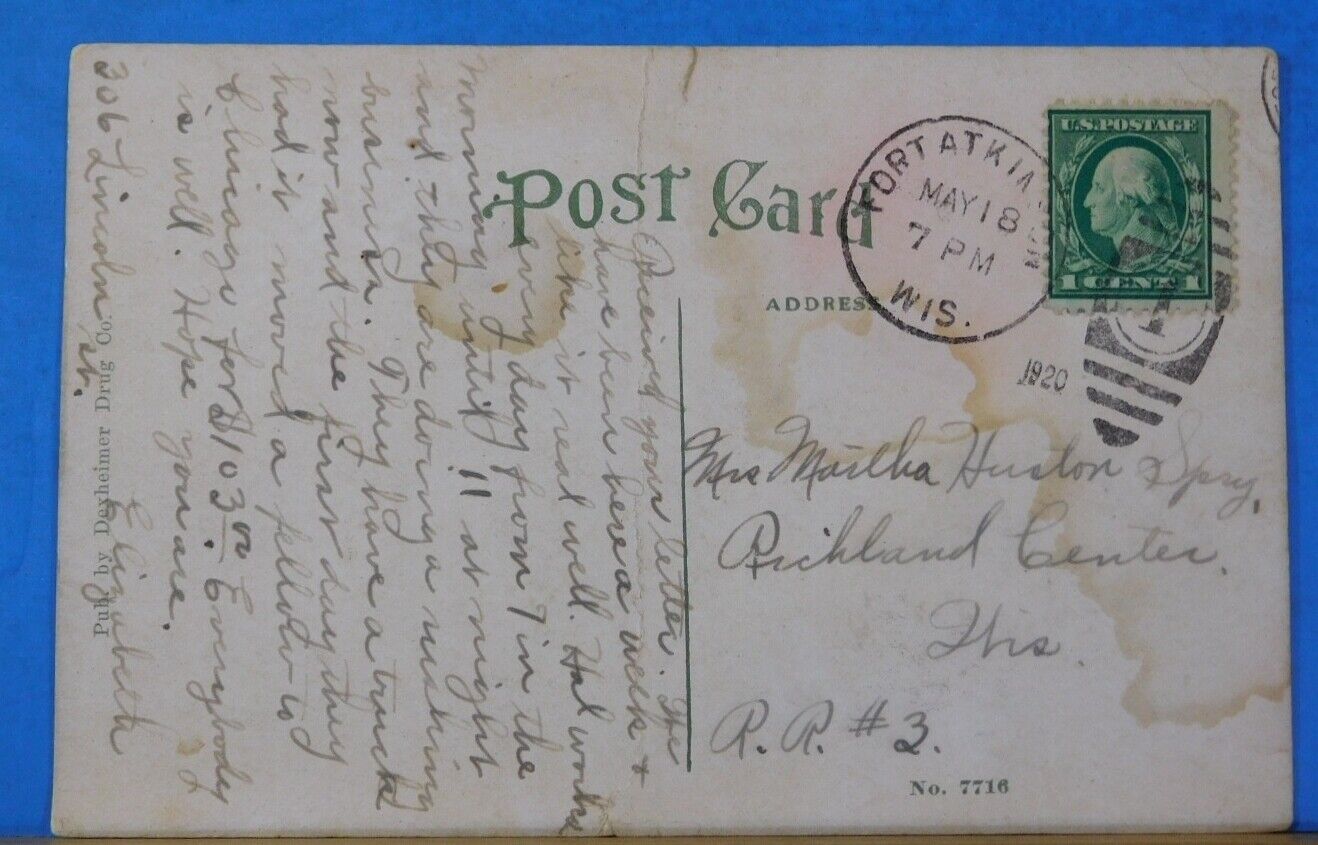 Post Card
ADDRESS
FORT ATKIN
MAY 18
7 PM
WIS.
1920
U.S. POSTAGE
1 CENT 1
Received your letter. We
have been here a week &
like it real well. Hal works
every day from 7 in the
morning until 11 at night
and they are doing a rushing
business. They have a truck
now and the first day they
had it moved a fellow to
Chicago for $103.00. Everybody
is well. Hope you are.
Elizabeth
306 Lincoln st.
Pub. by Dexheimer Drug Co.
Mrs Huston Spry,
Richland Center,
Wis.
R. R. #3.
No. 7716